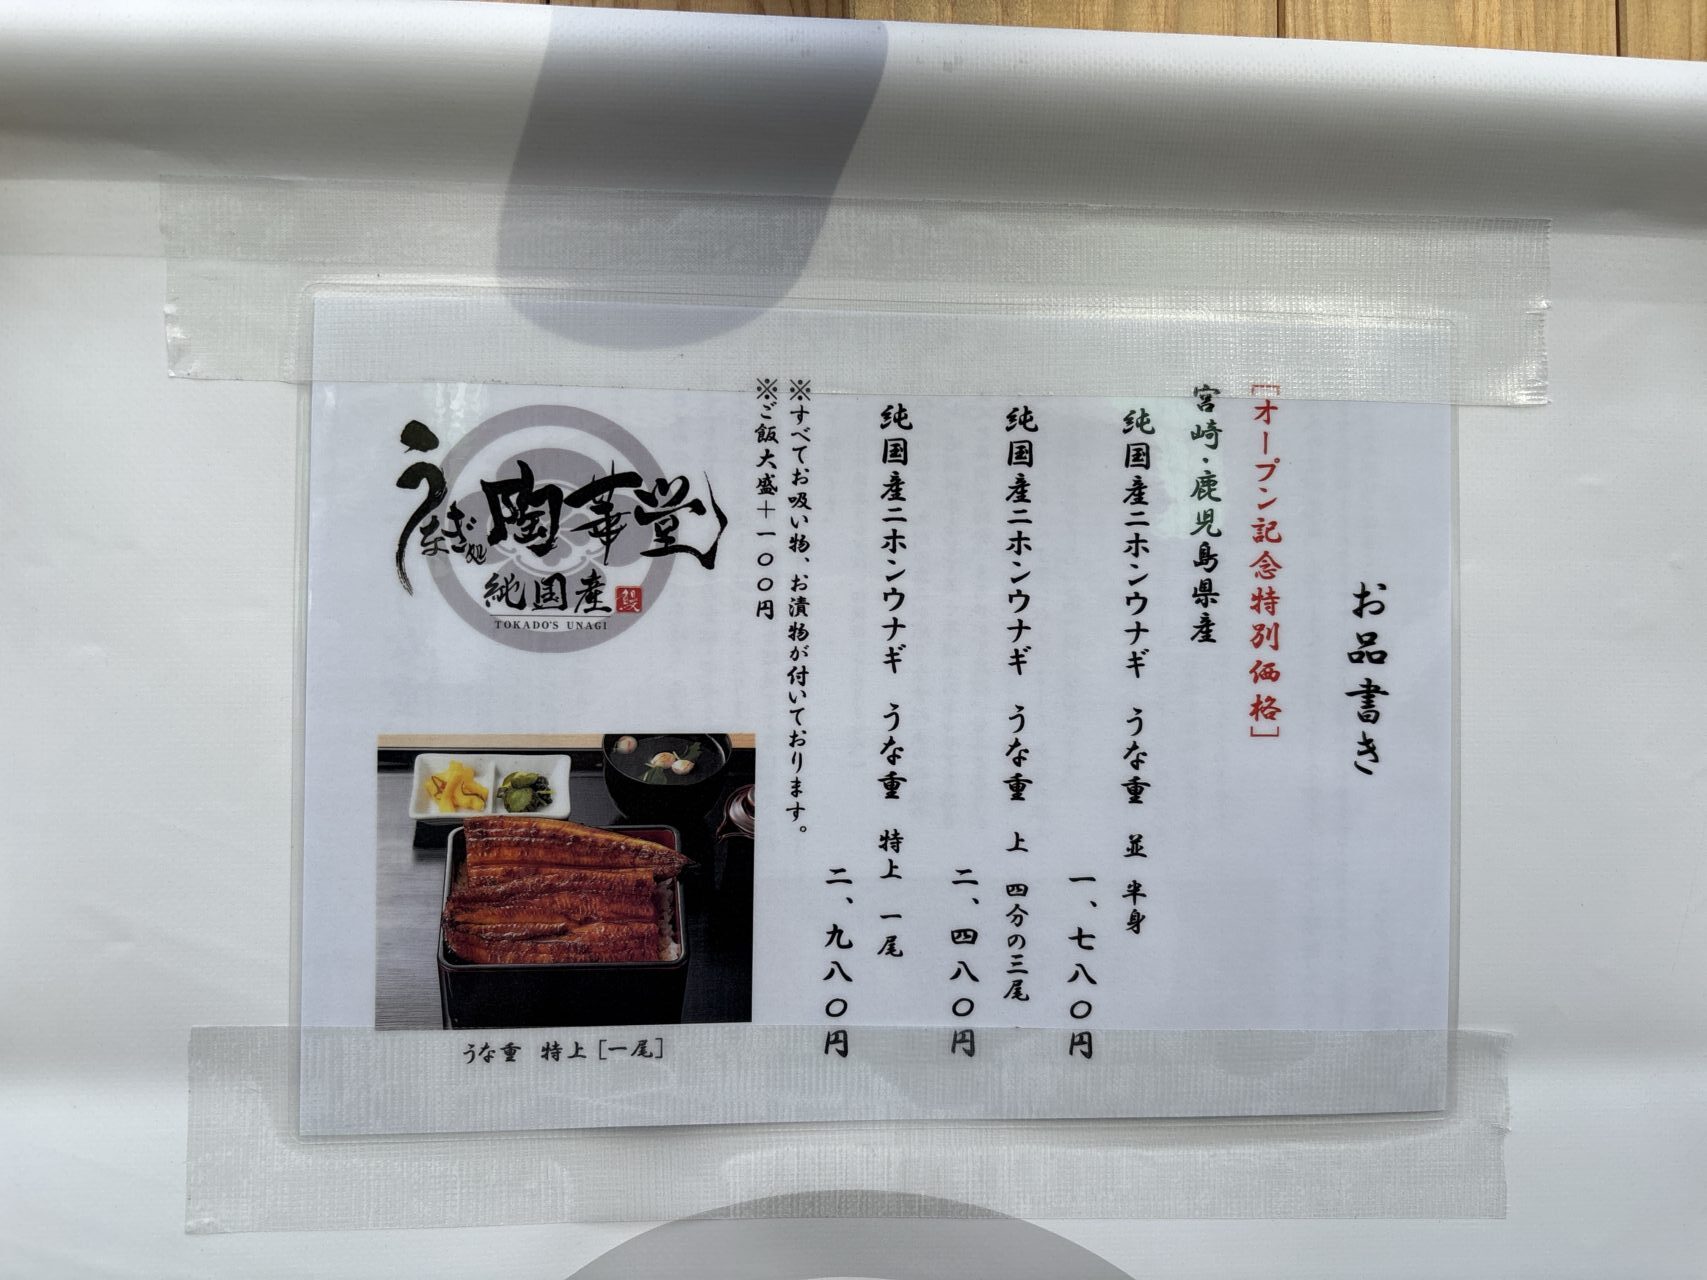 お品書き
［オープン記念特別価格］
宮崎・鹿児島県産
純国産ニホンウナギ　うな重　並　半身
一、七八〇円
純国産ニホンウナギ　うな重　上　四分の三尾
二、四八〇円
純国産ニホンウナギ　うな重　特上　一尾
二、九八〇円
※すべてお吸い物、お漬物が付いております。
※ご飯大盛＋一〇〇円
うなぎ処
陶華堂
純国産
鰻
TOKADO'S UNAGI
うな重　特上［一尾］